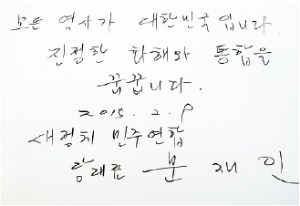 모든 역사가 대한민국입니다.
진정한 화해와 통합을
꿈꿉니다.
2015. 2. 9
새정치민주연합
당대표 문재인